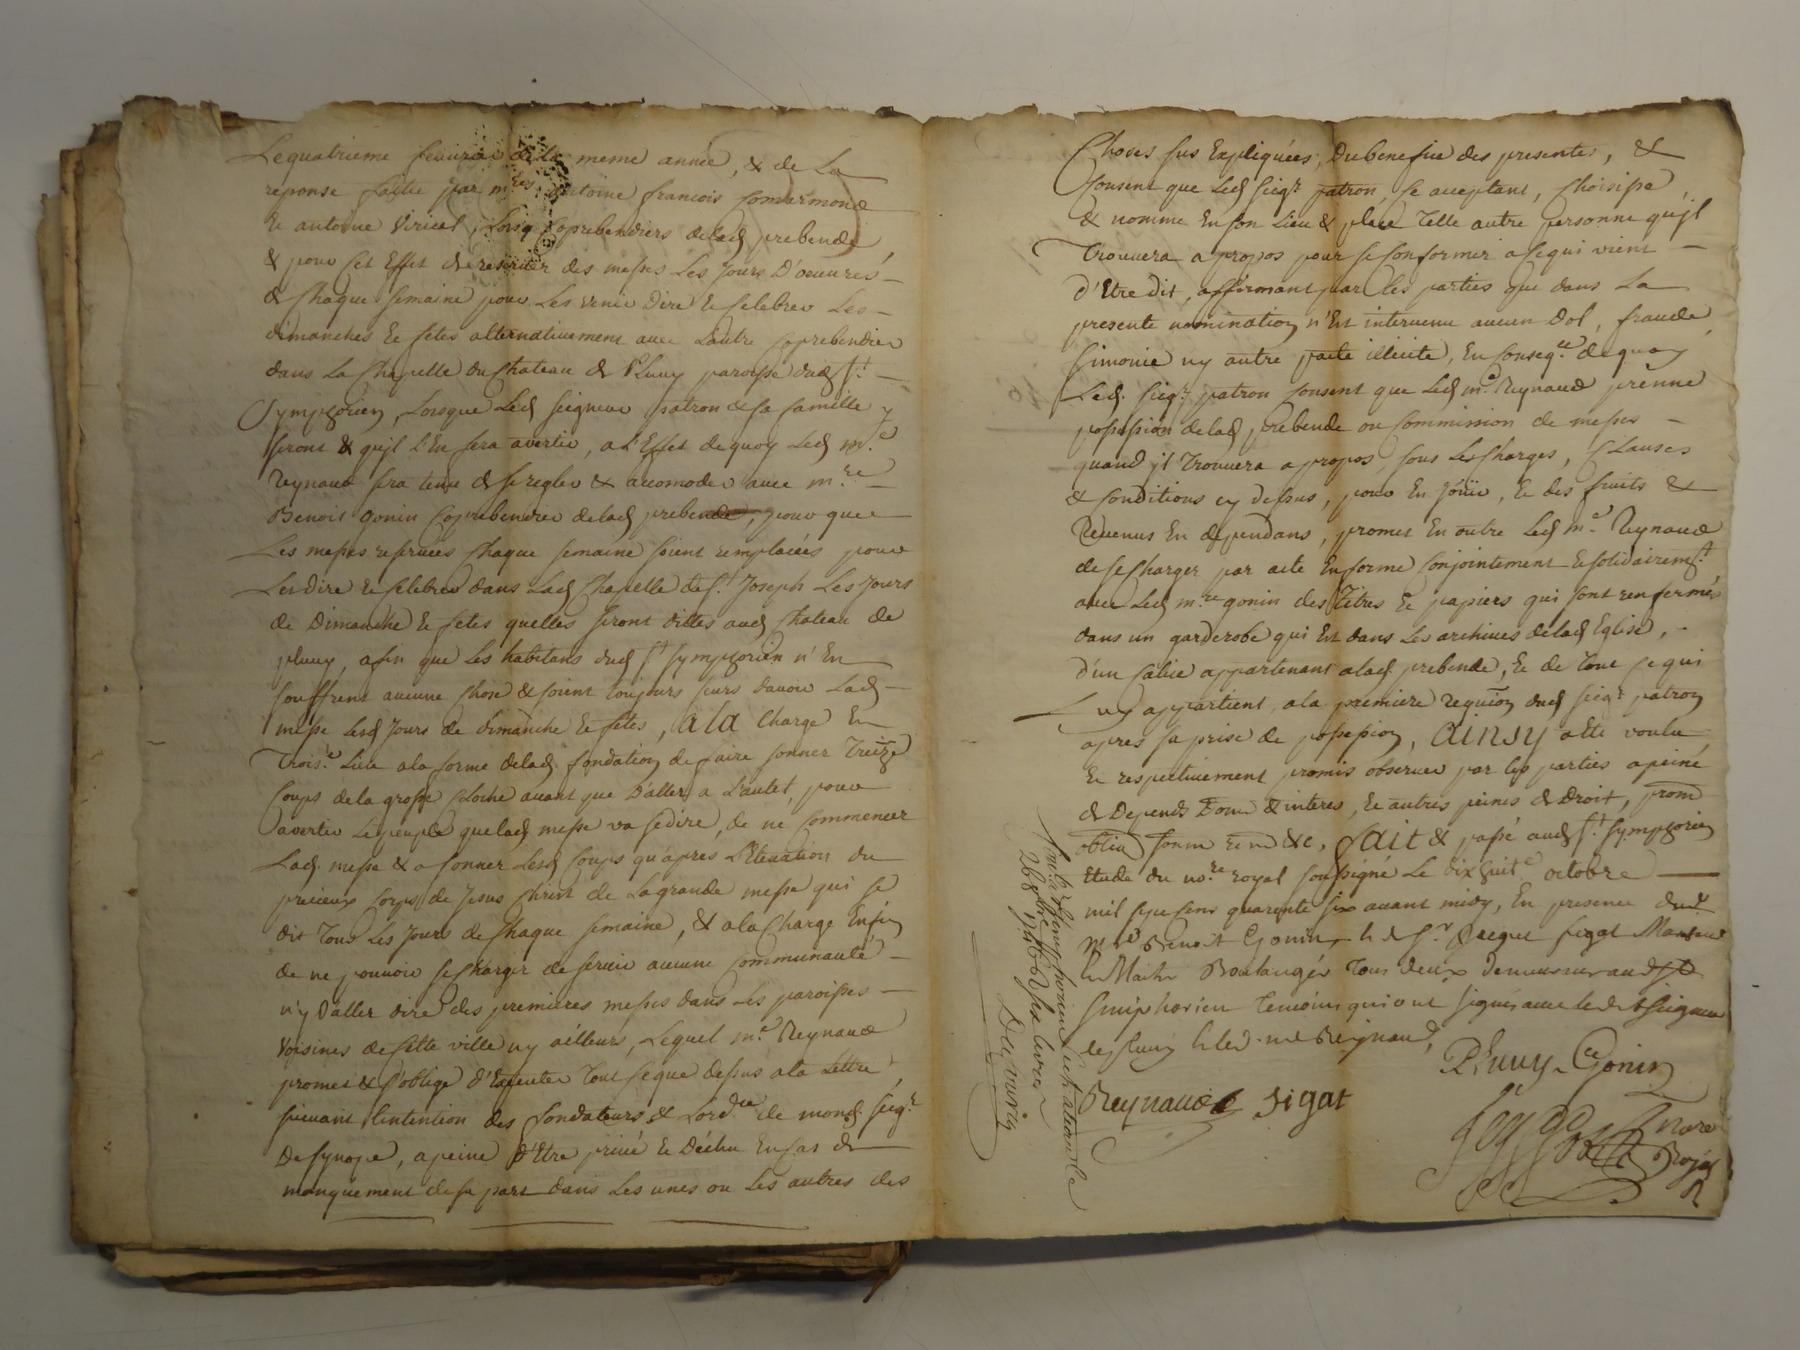 Le quatrieme feuvrier de la meme année, & de La
reponse faitte par m.res antoine francois Comarmond
Et antoine Viricel, Lors Coprebendiers delad prebende,
& pour Cet Effet de reserver des messes Les Jours D'oeuvres
de Chaque semaine pour Les venir Dire Et Celebrer Les
dimanches Et fetes alternativement avec Lautre Coprebendier
dans La Chapelle du Chateau de Pluvy paroisse dud St.
Symphorien, Lorsque Led seigneur patron & sa famille y
seront & qu'jl L'En sera avertir, a L'Effet de quoy Led m.e
Reynaud sera tenu de se regler & accomoder avec m.re
Benoit gonin Coprebendier delad prebende, pour que
Les messes reservées Chaque semaine soient remplacées pour
Les dire Et Celebrer dans Lad Chapelle de St. Joseph Les Jours
de Dimanche Et fetes quelles seront dittes aud Chateau de
pluvy, afin que Les habitans dud St Symphorien n'En
souffrent aucune Chose & soient toujours seurs davoir Lad
messe Lesd Jours de dimanche Et fetes, a La Charge En
Trois.e Lieu a la forme delad. fondation de faire sonner Treize
Coups de la grosse Cloche avant que D'aller a L'autel, pour
avertir Le peuple que lad messe va se dire, de ne Commencer
Lad. messe & a sonner Lesd Coups qu'apres L'Elevation du
precieux Corps de Jesus Christ de La grande messe qui se
dit Tous Les Jours de Chaque semaine, & a la Charge Enfin
de ne pouvoir se Charger de servir aucune Communauté
n'y D'aller dire des premieres messes dans Les paroisses
Voisines de Cette ville ny ailleurs, Lequel m.e Reynaud
promet & s'oblige d'Executer Tout Ce que dessus a la Lettre
suivant L'intention des fondateurs & Lord.ce de mond. seig.r
De Synope, a peine D'Etre privé Et Déchu En Cas de
manquement de sa part dans Les unes ou Les autres des
Choses sus Expliquées, Du benefice des presentes, &
Consent que Led seig.r patron, Ce acceptant, Choisisse,
& nomme En son Lieu & place Telle autre personne qu'jl
Trouvera a propos pour se Conformer a Ce qui vient
d'Etre dit, affirmant par Les parties que dans La
presente nomination n'Est intervenu aucun Dol, fraude,
simonie ny autre pacte illicite, En Conseq.ce de quoy
Led. seig.r patron Consent que Led m.e Reynaud prenne
possession delad prebende ou Commission de messes
quand jl Trouvera a propos, sous Les Charges, Clauses
& Conditions cy dessus, pour En Jöüir, Et des fruits &
Revenus En dependans, promet En outre Led m.e Reynaud
de se Charger par acte En forme Conjointement & solidairem.t
avec Led m.re gonin des Titres Et papiers qui sont renfermés
dans un garderobe qui Est dans Les archives delad Eglise,
d'un Calice appartenant a lad prebende, Et de Tout Ce qui
Luy appartient, a la premiere requi[s]on dud seig.r patron
apres sa prise de possession, Ainsy a Eté voulu
Et respectivement promis observer par Les parties a peine
de Depends Dom. & interes, Et autres peines de Droit, prom
oblig soum ren &c, Fait & passé aud St. Symphorien
Etude du no.re royal soussigné Le dix huit.e octobre
mil sept Cent quarente six avant midy, En presence dud.
m.re Benoit Gonin, & de S.r Jacque Sigat Marchand
& Maitre Boulanger Tous deux demeurants aud St
Simphorien Temoins qui ont signés avec led. Seigneur
de pluvy & led. m.e Reignaud,
Pluvy Gonin
Reynaud Sigat
no.re Royal
Con.lé a St Simphorien Le chateau Le
28 8bre 1746